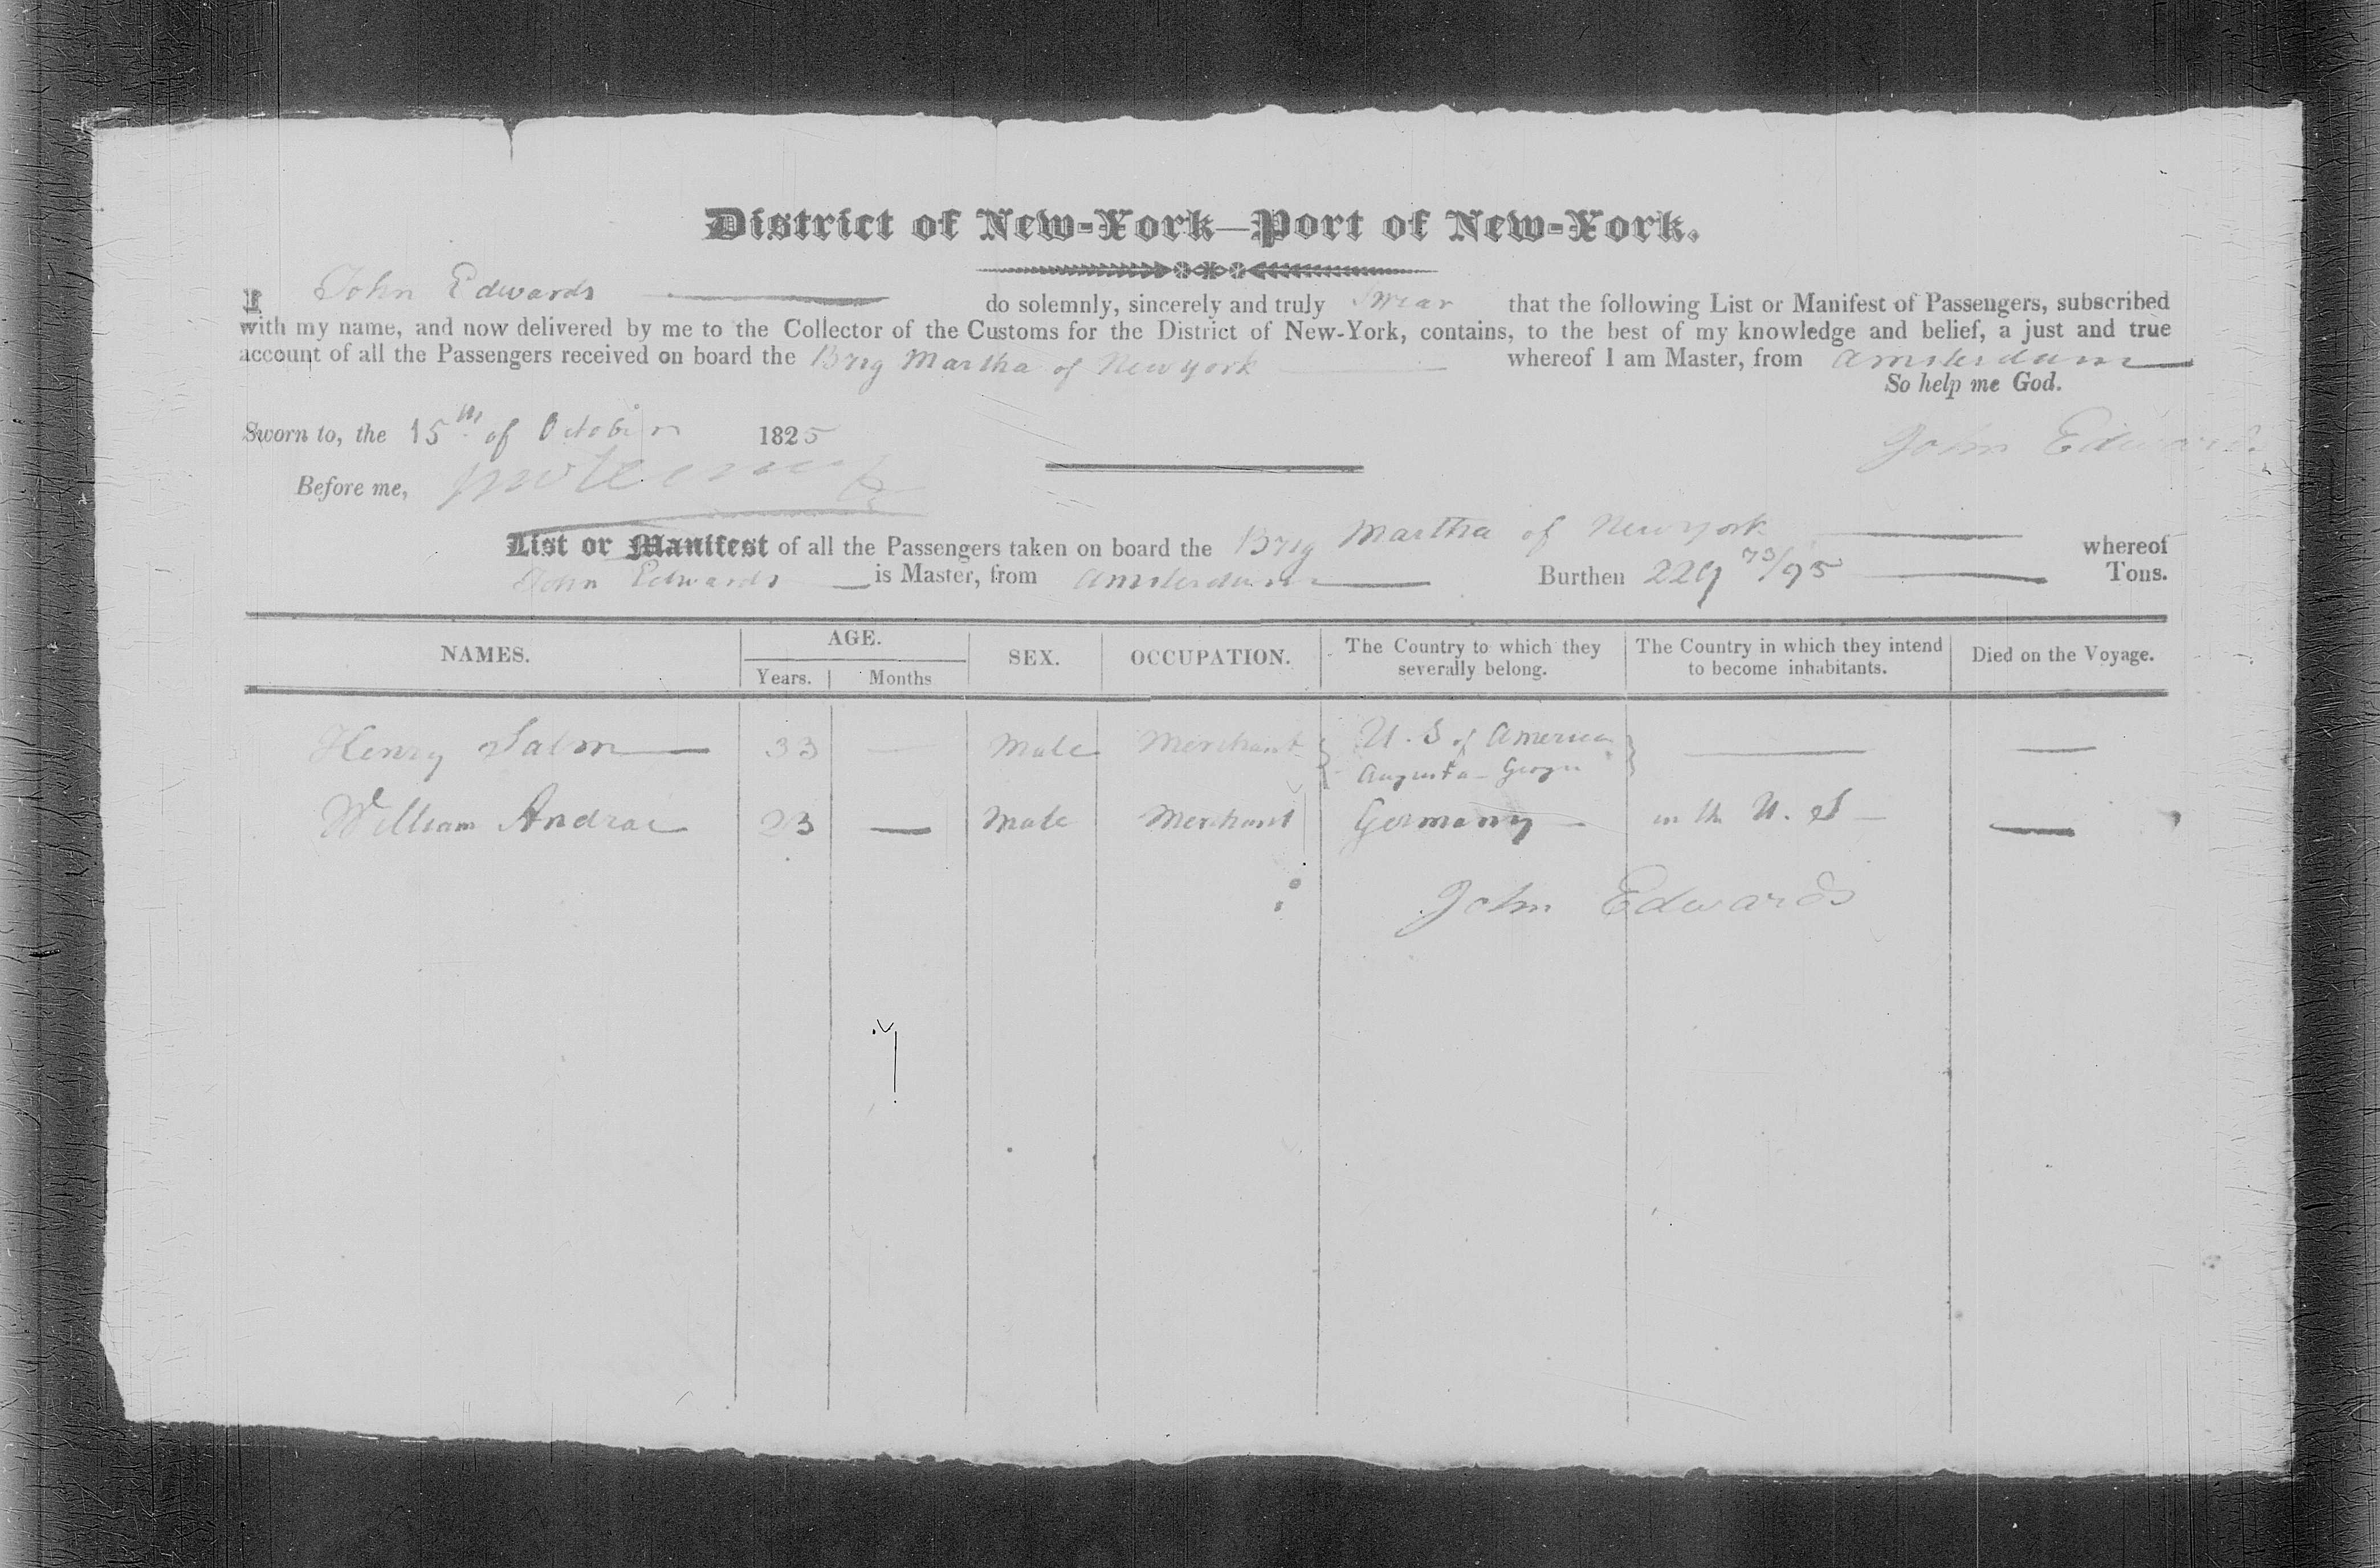 District of New-York—Port of New-York.
I John Edwards do solemnly, sincerely and truly Swear that the following List or Manifest of Passengers, subscribed
with my name, and now delivered by me to the Collector of the Customs for the District of New-York, contains, to the best of my knowledge and belief, a just and true
account of all the Passengers received on board the Brig Martha of New york whereof I am Master, from Amsterdam
So help me God.
Sworn to, the 15th of October 1825 John Edwards
Before me,
List or Manifest of all the Passengers taken on board the Brig Martha of New york whereof
John Edwards is Master, from Amsterdam Burthen 229 73/95 Tons.
NAMES. AGE. SEX. OCCUPATION. The Country to which they severally belong. The Country in which they intend to become inhabitants. Died on the Voyage.
Years. Months
Henry Salm — 33 — Male Merchant U. S of America — —
Augusta - Georgia
William Andrae 23 — Male Merchant Germany — in the U. S — —
John Edwards